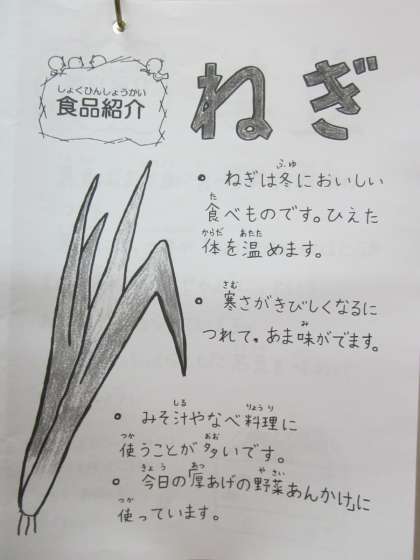 しょくひんしょうかい
食品紹介
ねぎ
• ねぎは冬においしい
食べものです。ひえた
体を温めます。
• 寒さがきびしくなるに
つれて。あま味がでます。
• みそ汁やなべ料理に
使うことが多いです。
• 今日の「厚あげの野菜あんかけ」に
使っています。